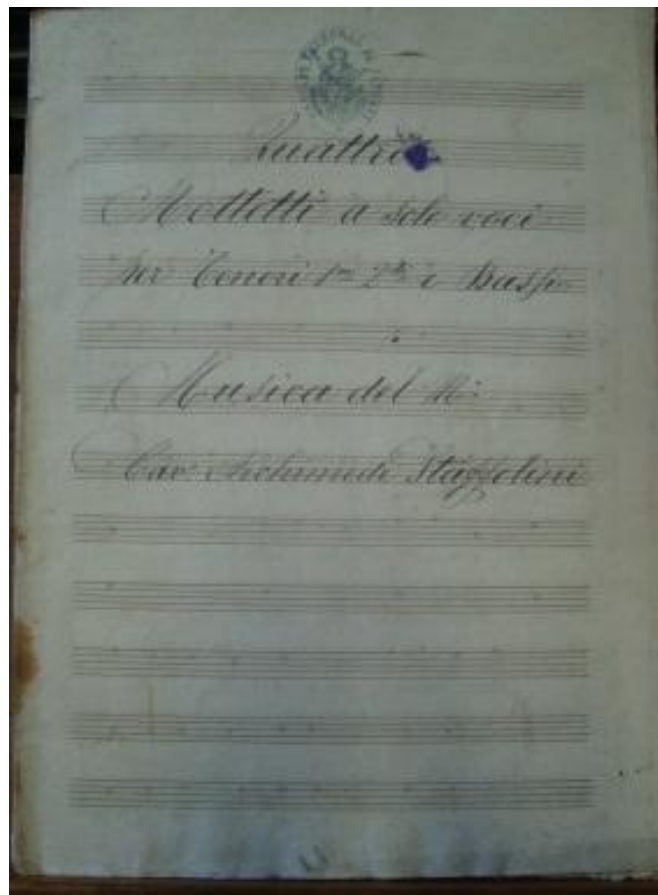 Quattro
Mottetti a sole voci
per Tenori 1mi 2di e Bassi
Musica del M°
Cav Archimede Staffolini